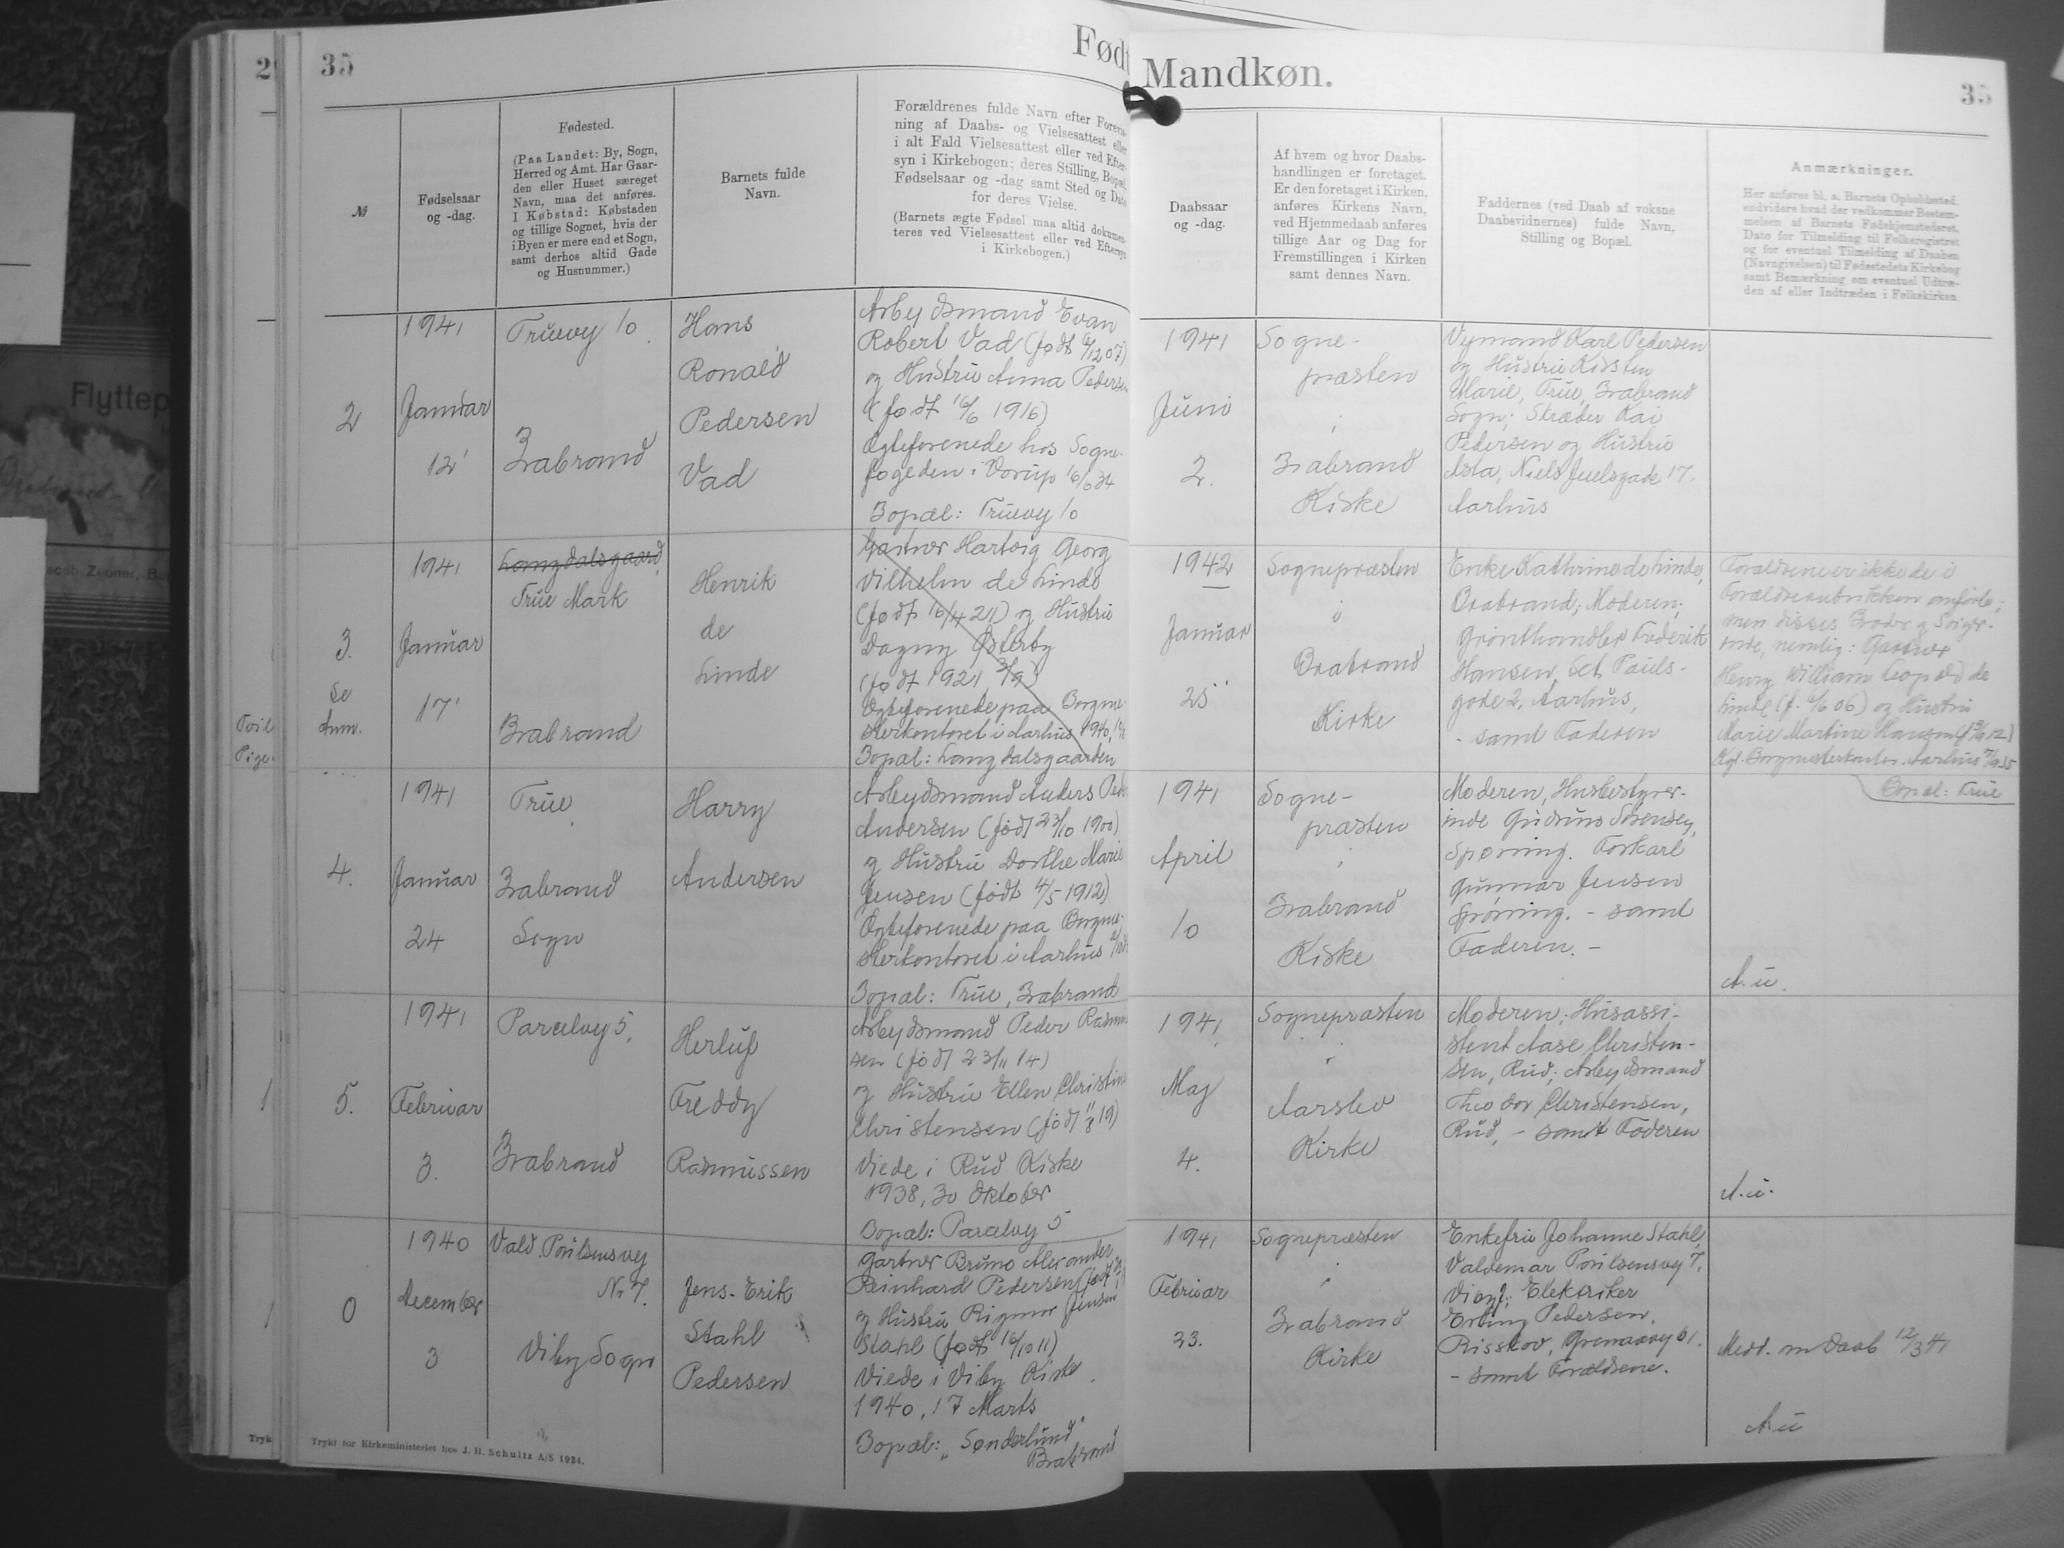 35
Født
Mandkøn.
35
№
Fødselsaar
og -dag.
Fødested.
(Paa Landet: By, Sogn,
Herred og Amt. Har Gaar-
den eller Huset særeget
Navn, maa det anføres.
I Købstad: Købstaden
og tillige Sognet, hvis der
i Byen er mere end et Sogn,
samt derhos altid Gade
og Husnummer.)
Barnets fulde
Navn.
Forældrenes fulde Navn efter Forevis-
ning af Daabs- og Vielsesattest eller
i alt Fald Vielsesattest eller ved Efter-
syn i Kirkebogen; deres Stilling, Bopæl,
Fødselsaar og -dag samt Sted og Dato
for deres Vielse.
(Barnets ægte Fødsel maa altid dokumen-
teres ved Vielsesattest eller ved Eftersyn
i Kirkebogen.)
Daabsaar
og -dag.
Af hvem og hvor Daabs-
handlingen er foretaget.
Er den foretaget i Kirken,
anføres Kirkens Navn,
ved Hjemmedaab anføres
tillige Aar og Dag for
Fremstillingen i Kirken
samt dennes Navn.
Faddernes (ved Daab af voksne
Daabsvidnernes) fulde Navn,
Stilling og Bopæl.
Anmærkninger.
Her anføres bl. a. Barnets Opholdssted,
endvidere hvad der vedkommer Bestem-
melsen af Barnets Fødehjemstedsret,
Dato for Tilmelding til Folkeregistret
og for eventuel Tilmelding af Daaben
(Navngivelsen) til Fødestedets Kirkebog
samt Bemærkning om eventuel Udtræ-
den af eller Indtræden i Folkekirken.
2
1941
Januar
12
Truevej 10
Brabrand
Hans
Ronald
Pedersen
Vad
Arbejdsmand Evan
Robert Vad (født 6/12 07)
og Hustru Anna Pedersen
(født 16/6 1916)
Ægteforenede hos Sogne-
fogeden i Vorup 16/6 34
Bopæl: Truevej 10
1941
Juni
2.
Sogne-
præsten
i
Brabrand
Kirke
Vejmand Karl Pedersen
og Hustru Kirsten
Marie, True, Brabrand
Sogn; Skræder Kai
Pedersen og Hustru
Asta, Niels Juelsgade 17.
Aarhus
3.
Se
Anm.
1941
Januar
17
Langdalsgaard
True Mark
Brabrand
Henrik
de
Linde
Gartner Hartvig Georg
Vilhelm de Linde
(født 16/4 21) og Hustru
Dagny Østerby
(født 1921 3/9)
Ægteforenede paa Borgme-
sterkontoret i Aarhus 1940,
Bopæl: Langdalsgaarden
1942
Januar
25
Sognepræsten
i
Brabrand
Kirke
Enke Kathrine de Linde,
Brabrand; Moderen;
Grønthandler Frederik
Hansen, Sct. Pauls-
gade 2, Aarhus,
- samt Faderen
Forældrene er ikke de i
Forældrerubrikken anførte;
men disses Broder og Sviger-
inde, nemlig: Gartner
Henry William Leopold de
Linde (f. 6/6 06) og Hustru
Marie Martine Hansen
Bopæl: True
4.
1941
Januar
24
True
Brabrand
Sogn
Harry
Andersen
Arbejdsmand Anders
Andersen (født 23/10 1900)
og Hustru Dorthe Marie
Jensen (født 4/5 1912)
Ægteforenede paa Borgme-
sterkontoret i Aarhus
Bopæl: True, Brabrand
1941
April
10
Sogne-
præsten
i
Brabrand
Kirke
Moderen, Husbestyrer-
inde Gudrun Sørensen,
Spørring. Forkarl
Gunnar Jensen
Spørring. - samt
Faderen. -
A.u.
1
5.
1941
Februar
3.
Parcelvej 5,
Brabrand
Herluf
Freddy
Rasmussen
Arbejdsmand Peder
sen (født 23/11 14)
og Hustru Ellen Christine
Christensen (født 11/8 19)
Viede i Rud Kirke
1938, 30 Oktober
Bopæl: Parcelvej 5
1941
Maj
4.
Sognepræsten
i
Aarslev
Kirke
Moderen; Husassi-
stent Aase Christen-
sen, Rud; Arbejdsmand
Theodor Christensen,
Rud, - samt Faderen
A.u.
1
0
1940
December
3
Vald. Poulsensvej
Nr 7.
Viby Sogn
Jens-Erik
Stahl
Pedersen
Gartner Bruno Alexander
Reinhard Pedersen (født
og Hustru Rigmor Jensen
Stahl (født 16/10 11)
Viede i Viby Kirke
1940, 17 Marts
Bopæl: "Sønderlund"
Brabrand
1941
Februar
23.
Sognepræsten
i
Brabrand
Kirke
Enkefru Johanne Stahl,
Valdemar Poulsensvej 7,
Viby; Elektriker
Erling Pedersen,
Risskov, Grenaavej 61.
- samt Forældrene.
Medd. om Daab 12/3 41
A.u
Trykt for Kirkeministeriet hos J. H. Schultz A/S 1934.
Tryk
Flyttep